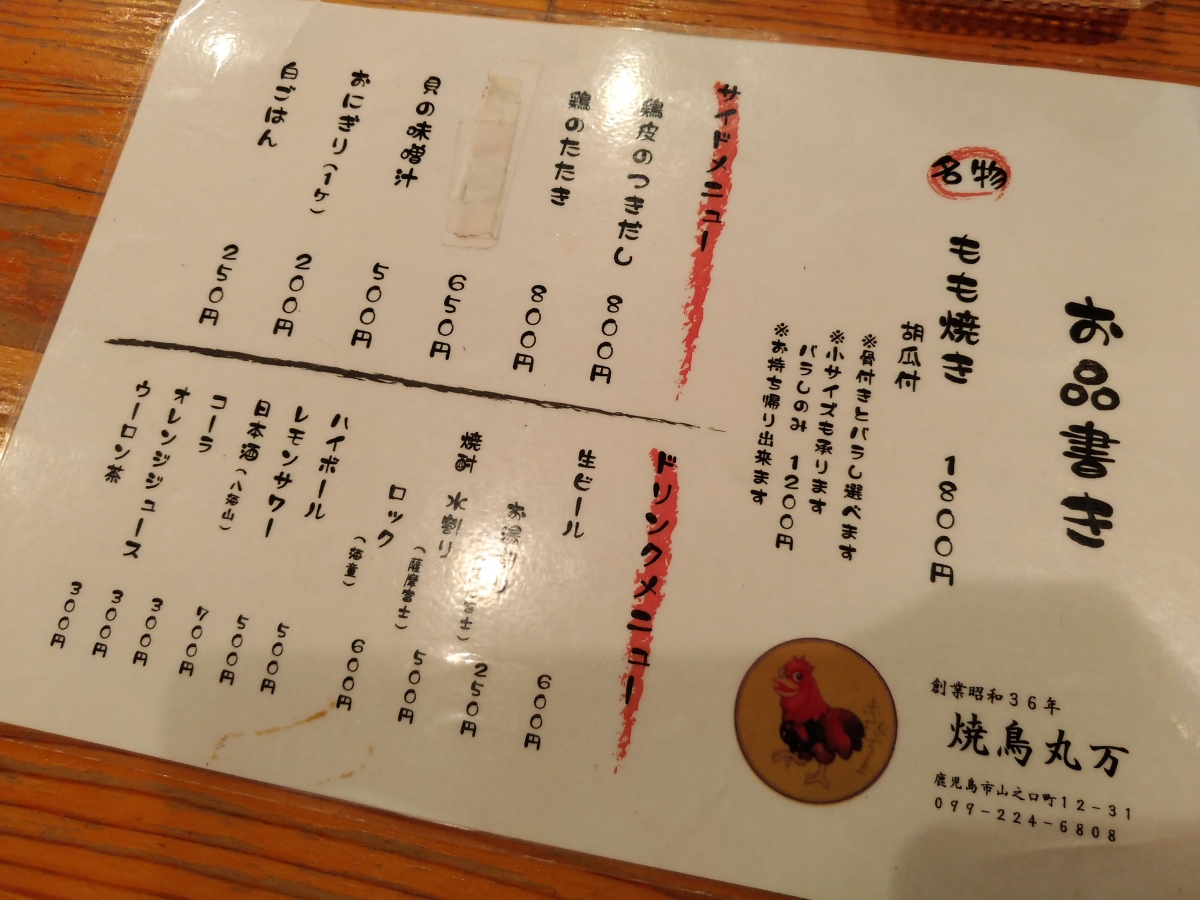 お品書き
名物 もも焼き 1800円
胡瓜付
※骨付きとバラし選べます
※小サイズも承ります
バラしのみ 1200円
※お持ち帰り出来ます
創業昭和36年
焼鳥丸万
鹿児島市山之口町12-31
099-224-6808
サイドメニュー
鶏皮のつきだし 800円
鶏のたたき 800円
650円
貝の味噌汁 500円
おにぎり(1ケ) 200円
白ごはん 250円
ドリンクメニュー
生ビール 600円
お湯割り 250円
焼酎 水割り(薩摩富士) 500円
ロック(海童) 600円
ハイボール 500円
レモンサワー 500円
日本酒(八海山) 700円
コーラ 300円
オレンジジュース 300円
ウーロン茶 300円